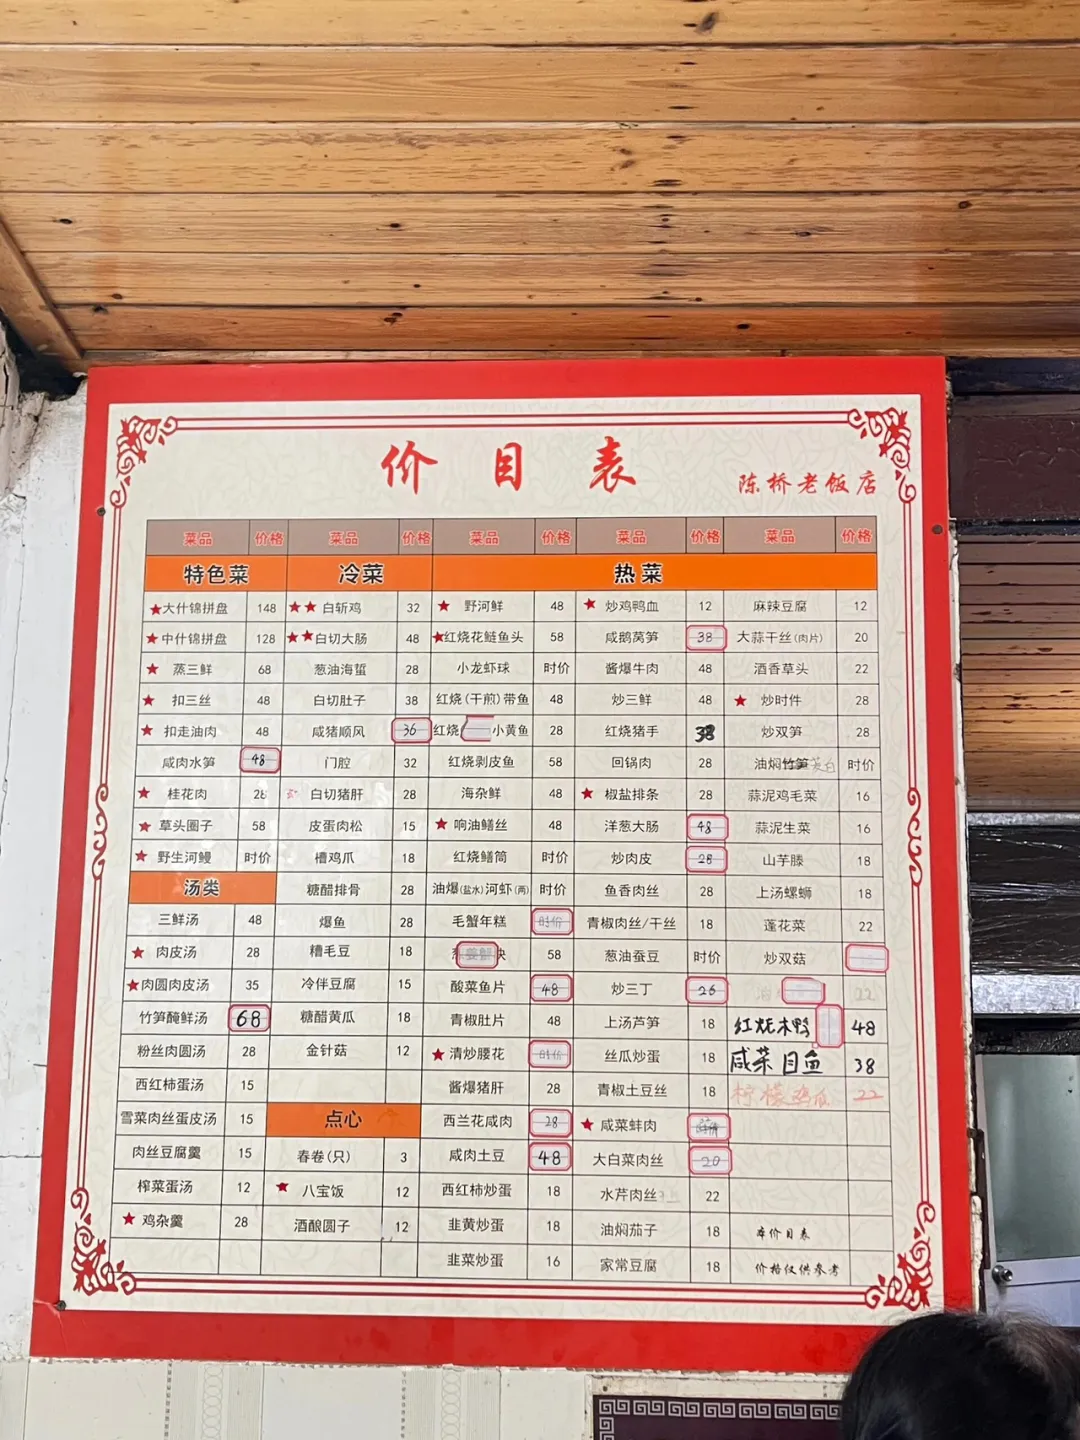 价目表
陈桥老饭店
菜品 价格 菜品 价格 菜品 价格 菜品 价格 菜品 价格
特色菜 冷菜 热菜
★大什锦拼盘 148 ★★白斩鸡 32 ★野河鲜 48 ★炒鸡鸭血 12 麻辣豆腐 12
★中什锦拼盘 128 ★★白切大肠 48 ★红烧花鲢鱼头 58 咸鹅莴笋 38 大蒜干丝(肉片) 20
★蒸三鲜 68 葱油海蜇 28 小龙虾球 时价 酱爆牛肉 48 酒香草头 22
★扣三丝 48 白切肚子 38 红烧(干煎)带鱼 48 炒三鲜 48 ★炒时件 28
★扣走油肉 48 咸猪顺风 36 红烧 小黄鱼 28 红烧猪手 38 炒双笋 28
咸肉水笋 48 门腔 32 红烧剥皮鱼 58 回锅肉 28 油焖 时价
★桂花肉 28 白切猪肝 28 海杂鲜 48 ★椒盐排条 28 蒜泥鸡毛菜 16
★草头圈子 58 皮蛋肉松 15 ★响油鳝丝 48 洋葱大肠 48 蒜泥生菜 16
★野生河鳗 时价 槽鸡爪 18 红烧鳝筒 时价 炒肉皮 28 山芋藤 18
汤类 糖醋排骨 28 油爆(盐水)河虾(两) 时价 鱼香肉丝 28 上汤螺蛳 18
三鲜汤 48 爆鱼 28 毛蟹年糕 时价 青椒肉丝/干丝 18 蓬花菜 22
★肉皮汤 28 糟毛豆 18 58 葱油蚕豆 时价 炒双菇
★肉圆肉皮汤 35 冷伴豆腐 15 酸菜鱼片 48 炒三丁 26 22
竹笋腌鲜汤 68 糖醋黄瓜 18 青椒肚片 48 上汤芦笋 18 红烧木鸭 48
粉丝肉圆汤 28 金针菇 12 ★清炒腰花 时价 丝瓜炒蛋 18 咸菜目鱼 38
西红柿蛋汤 15 酱爆猪肝 28 青椒土豆丝 18 柠檬鸡爪 22
雪菜肉丝蛋皮汤 15 点心 西兰花咸肉 28 ★咸菜蚌肉
肉丝豆腐羹 15 春卷(只) 3 咸肉土豆 48 大白菜肉丝 20
榨菜蛋汤 12 ★八宝饭 12 西红柿炒蛋 18 水芹肉丝 22
★鸡杂羹 28 酒酿圆子 12 韭黄炒蛋 18 油焖茄子 18 本价目表
韭菜炒蛋 16 家常豆腐 18 价格仅供参考